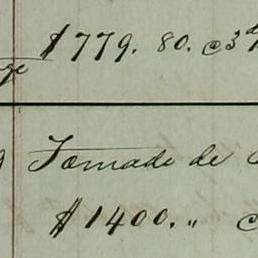 $779. 80. @ 3
Tomado de
$1400. "